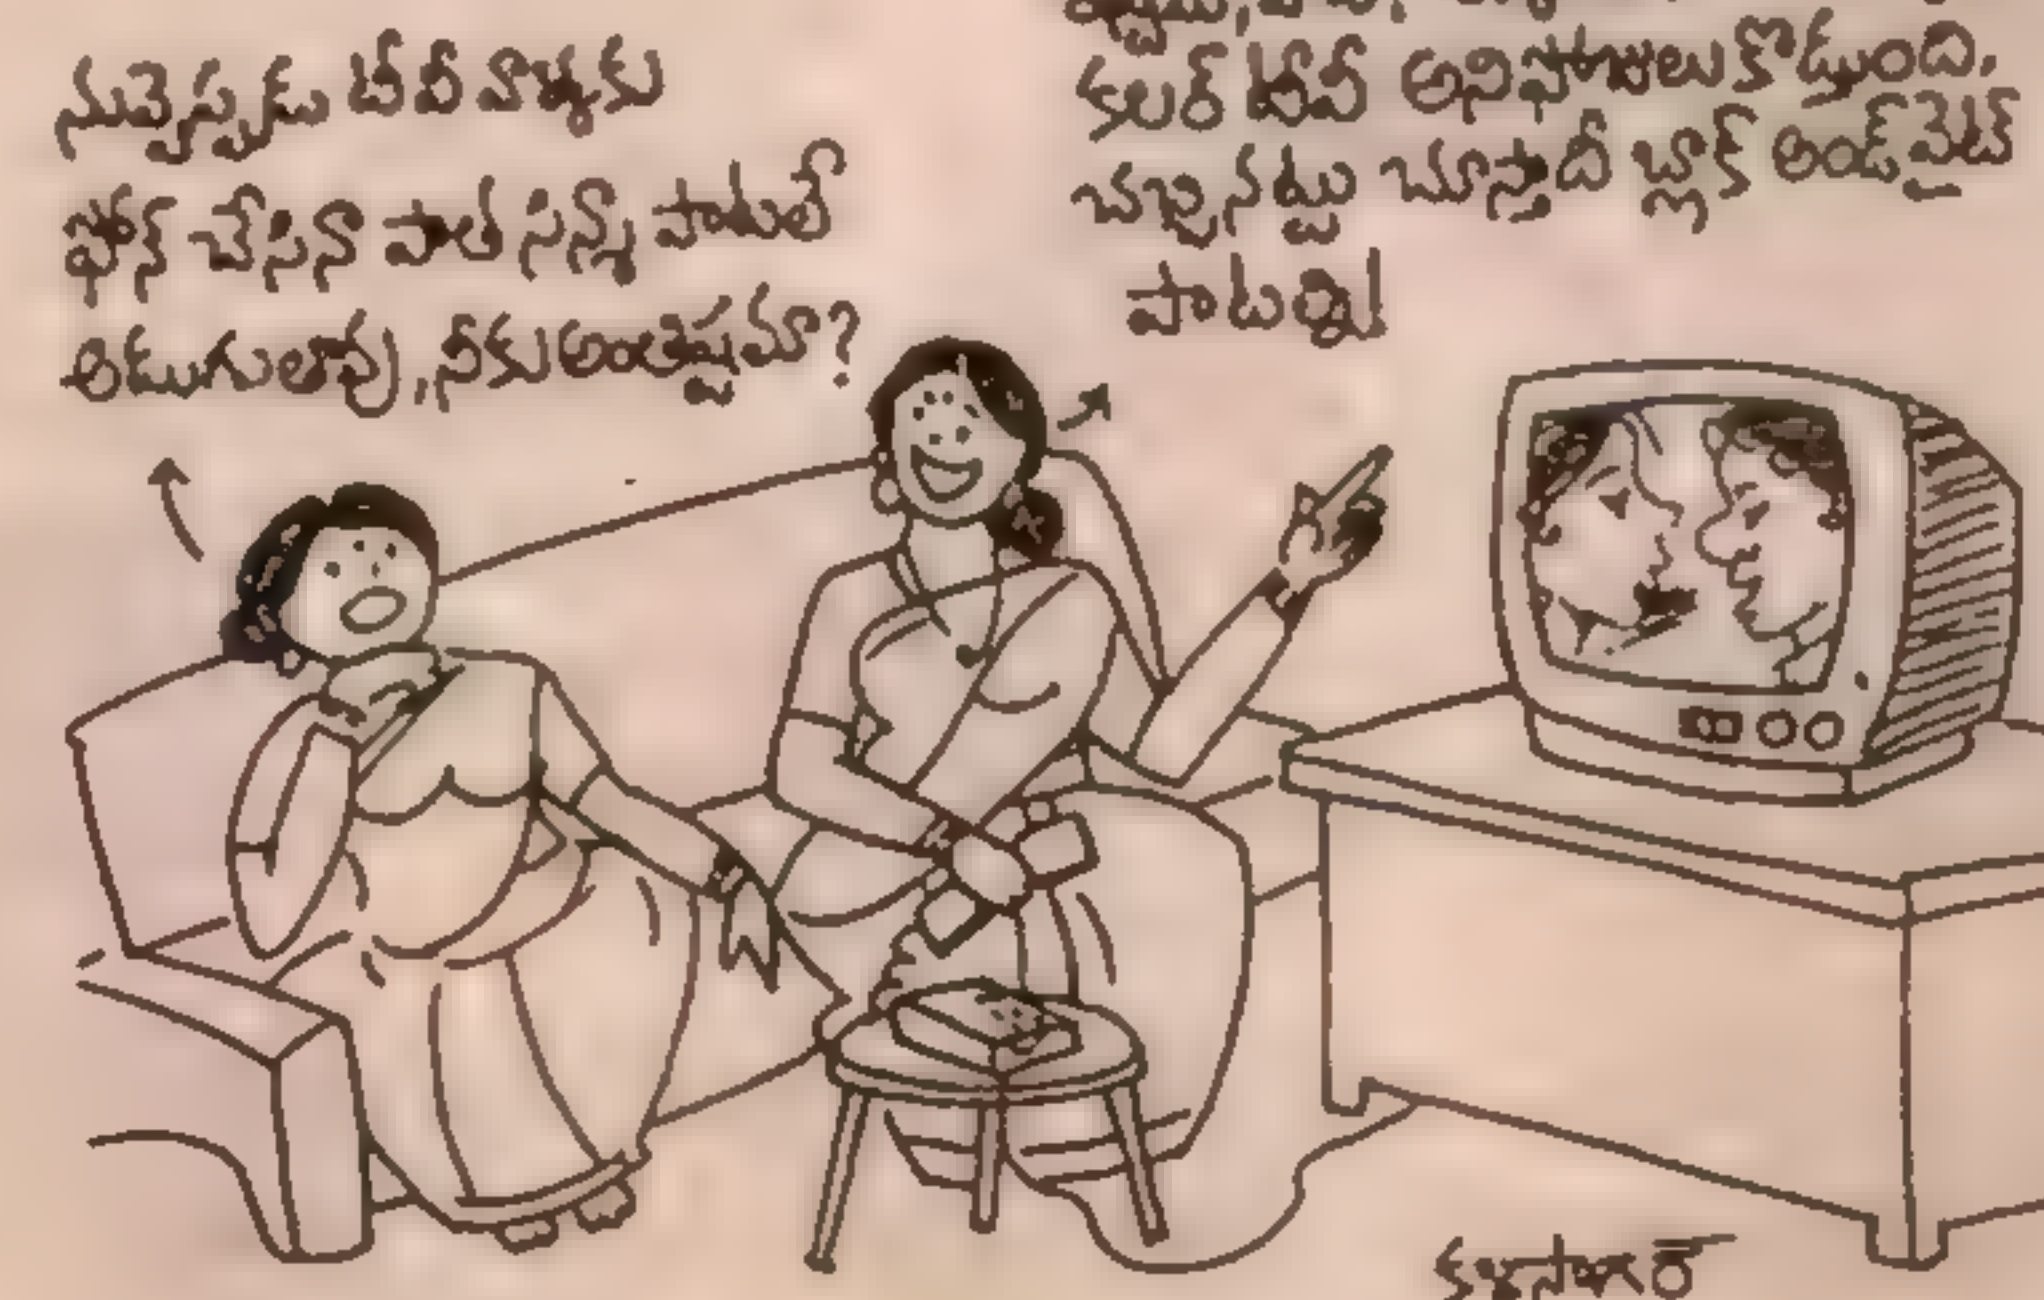 నువ్వెప్పుడు టీవీ వాళ్ళకు
ఫోన్ చేసినా పాత సిన్మా పాటలే
అడుగుతావు, నీకు అంతిష్టమా?
కలర్ టీవీ అని ఫోజులు కొడ్తుంది.
చచ్చినట్టు చూస్తాదీ బ్లాక్ అండ్ వైట్
పాటల్ని!
కళాసాగర్